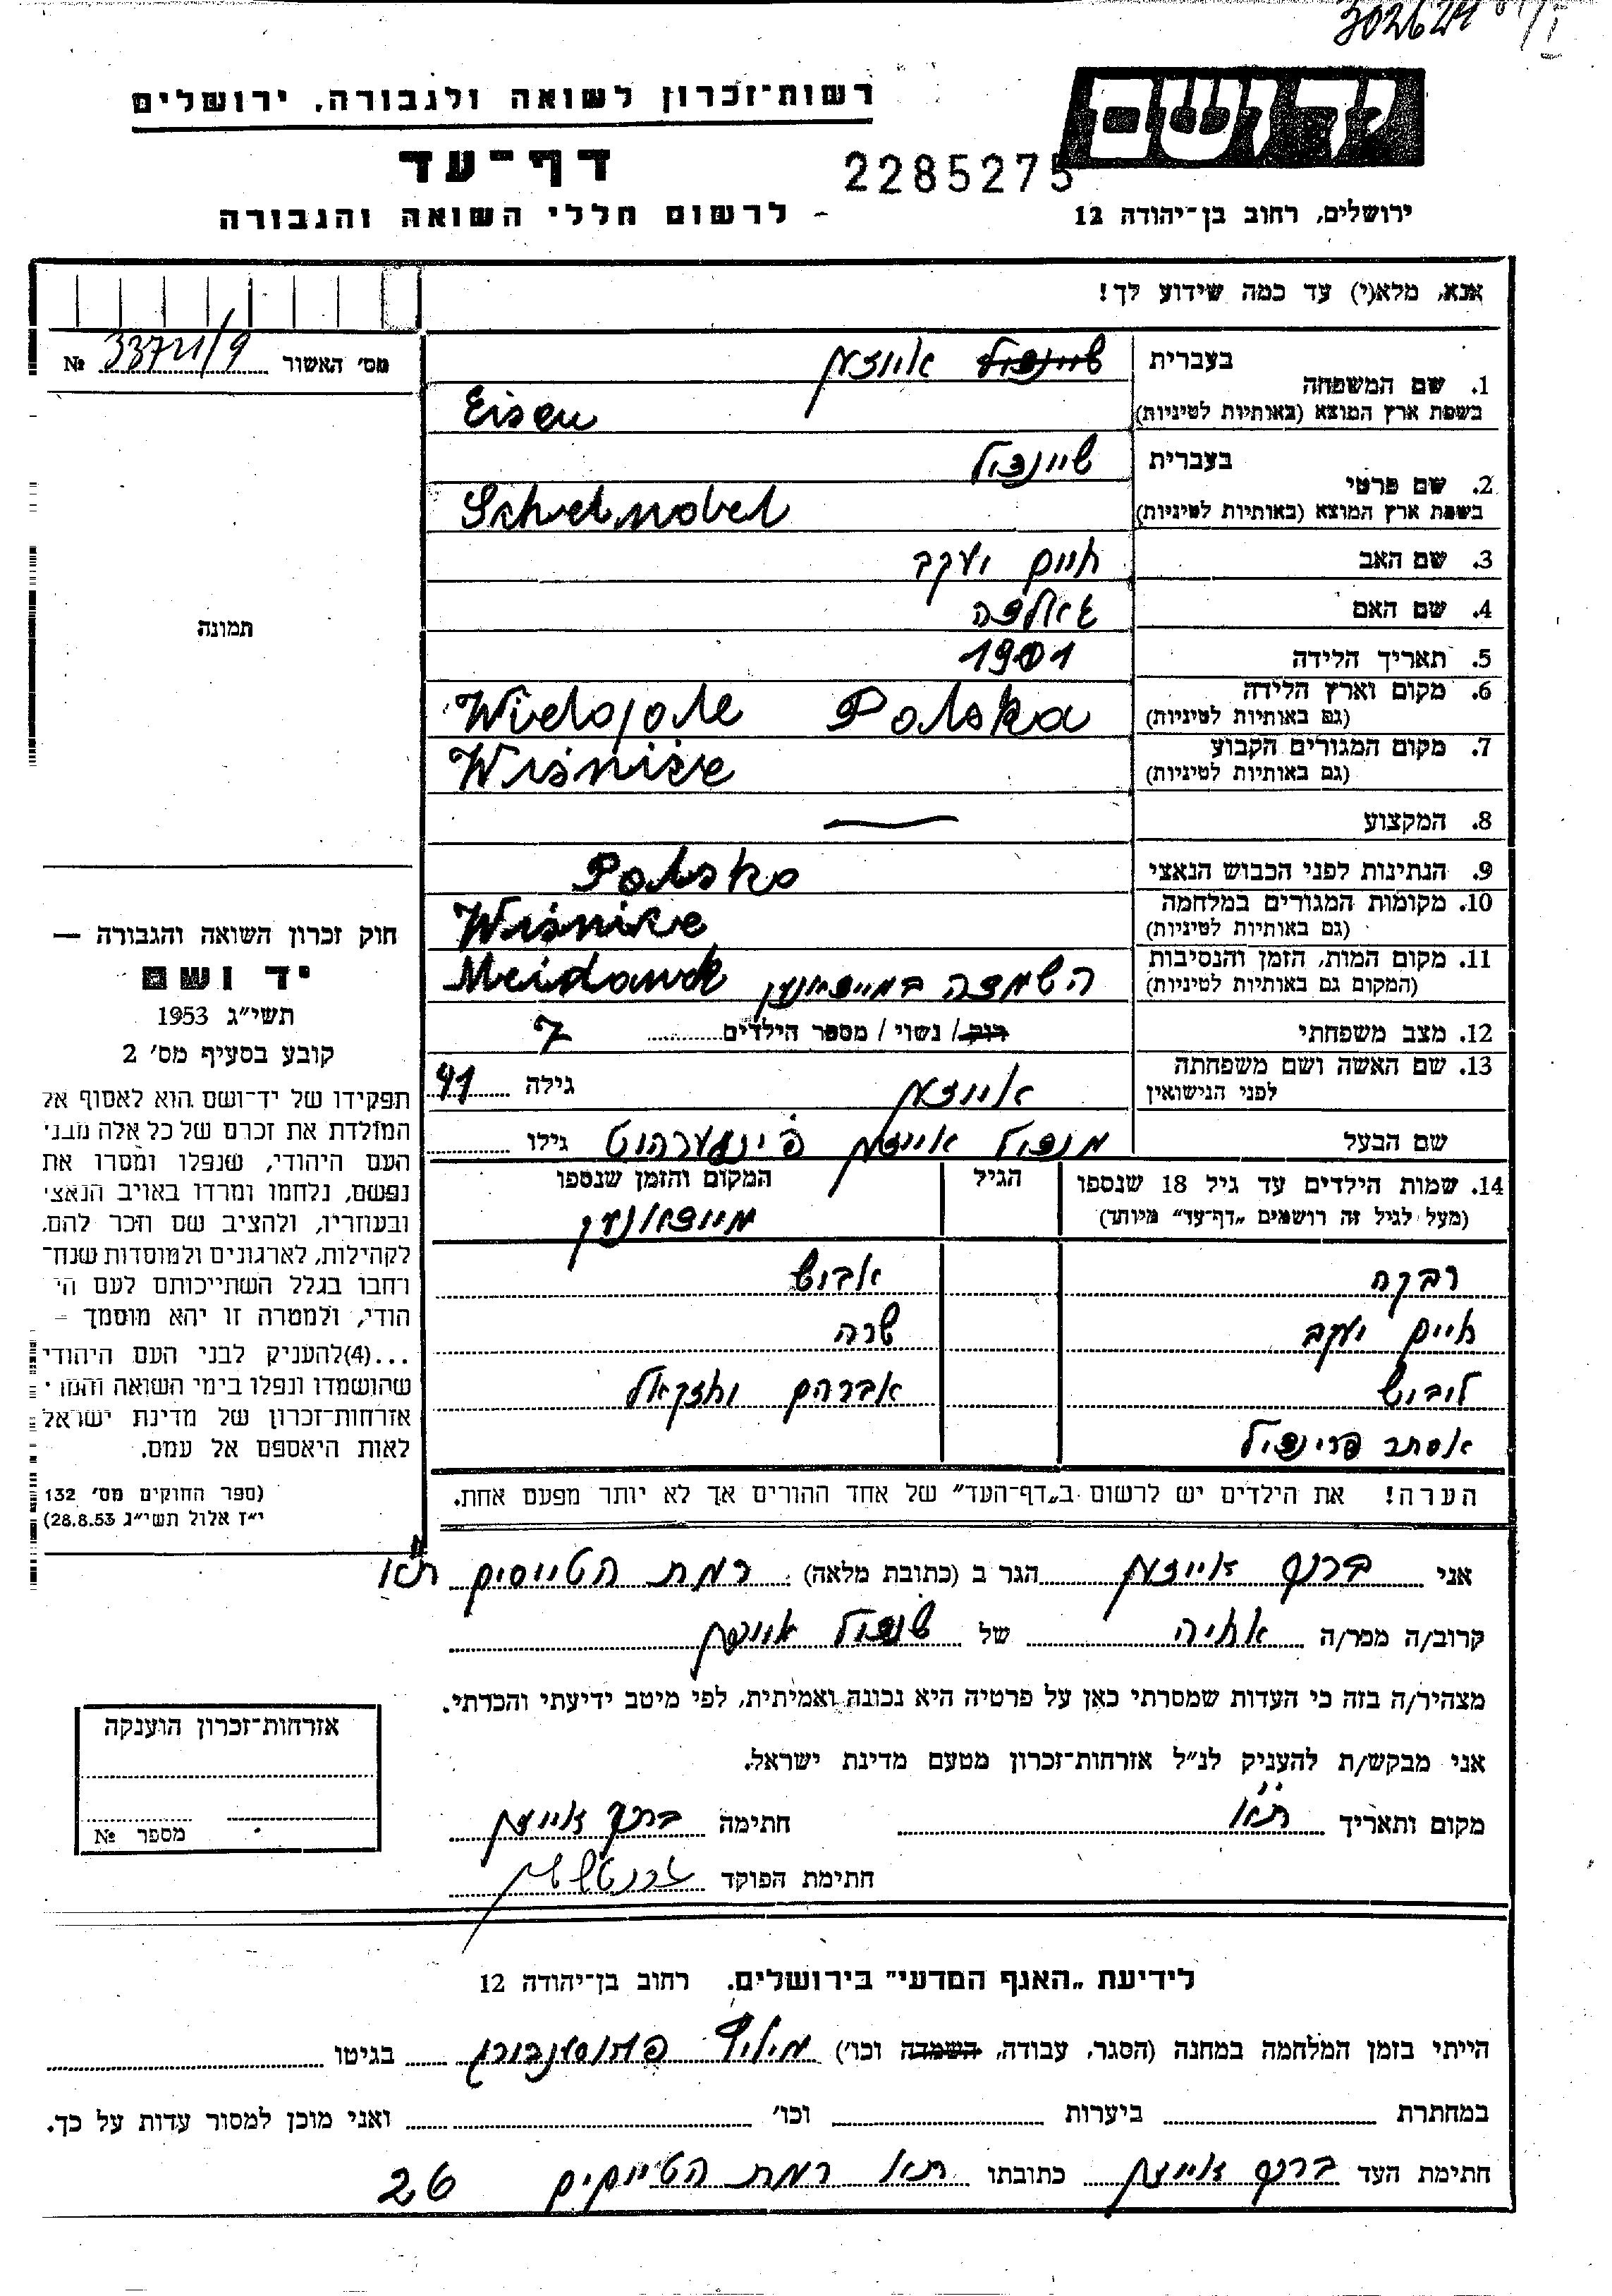 302624
רשות־זכרון לשואה ולגבורה, ירושלים
ידושם
דף־עד
2285275
לרשום חללי השואה והגבורה
ירושלים, רחוב בן־יהודה 12
אנא, מלא(י) עד כמה שידוע לך!
מס׳ האשור № 33721/9
1. שם המשפחה בעברית שיינדל אייזען
בשפת ארץ המוצא (באותיות לטיניות) Eisen
2. שם פרטי בעברית שיינדול
בשפת ארץ המוצא (באותיות לטיניות)
3. שם האב חיים יעקב
4. שם האם
5. תאריך הלידה 1901
6. מקום וארץ הלידה (גם באותיות לטיניות) Wielopole Polska
7. מקום המגורים הקבוע (גם באותיות לטיניות) Wiśnicze
8. המקצוע —
9. הנתינות לפני הכבוש הנאצי Polsko
10. מקומות המגורים במלחמה (גם באותיות לטיניות) Wiśnicze
11. מקום המות, הזמן והנסיבות (המקום גם באותיות לטיניות) השמדה Meidanek
12. מצב משפחתי רוק / נשוי / מספר הילדים 7
13. שם האשה ושם משפחתה לפני הנישואין אייזען גילה 41
שם הבעל מנדול אייזען גילו
14. שמות הילדים עד גיל 18 שנספו (מעל לגיל זה רושמים „דף־עד” מיוחד) הגיל המקום והזמן שנספו
רבקה אבוש
חיים יעקב שרה
ליבוש אברהם יחזקאל
אסתר פריינדול
הערה! את הילדים יש לרשום ב„דף־העד” של אחד ההורים אך לא יותר מפעם אחת.
תמונה
חוק זכרון השואה והגבורה —
יד ושם
תשי״ג 1953
קובע בסעיף מס׳ 2
תפקידו של יד־ושם הוא לאסוף אל
המולדת את זכרם של כל אלה מבני
העם היהודי, שנפלו ומסרו את
נפשם, נלחמו ומרדו באויב הנאצי
ובעוזריו, ולהציב שם וזכר להם,
לקהילות, לארגונים ולמוסדות שנח־
רחבו בגלל השתייכותם לעם הי
הודי, ולמטרה זו יהא מוסמך –
...(4)להעניק לבני העם היהודי
שהושמדו ונפלו בימי השואה והמרי
אזרחות־זכרון של מדינת ישראל
לאות היאספם אל עמם.
(ספר החוקים מס׳ 132
י״ז אלול תשי״ג 28.8.53)
אני ברוך אייזען הגר ב (כתובת מלאה) רמת הטייסים ת״א
קרוב/ה מכר/ה אחיה של שנדול אייזען
מצהיר/ה בזה כי העדות שמסרתי כאן על פרטיה היא נכונה ואמיתית, לפי מיטב ידיעתי והכרתי.
אני מבקש/ת להעניק לנ״ל אזרחות־זכרון מטעם מדינת ישראל.
מקום ותאריך ת״א חתימה ברוך אייזען
חתימת הפוקד
אזרחות־זכרון הוענקה
מספר №
לידיעת „האגף המדעי” בירושלים. רחוב בן־יהודה 12
הייתי בזמן המלחמה במחנה (הסגר, עבודה, השמדה וכו׳) בגיטו
במחתרת ביערות וכו׳ ואני מוכן למסור עדות על כך.
חתימת העד ברוך אייזען כתובתו ת״א רמת הטייסים 26